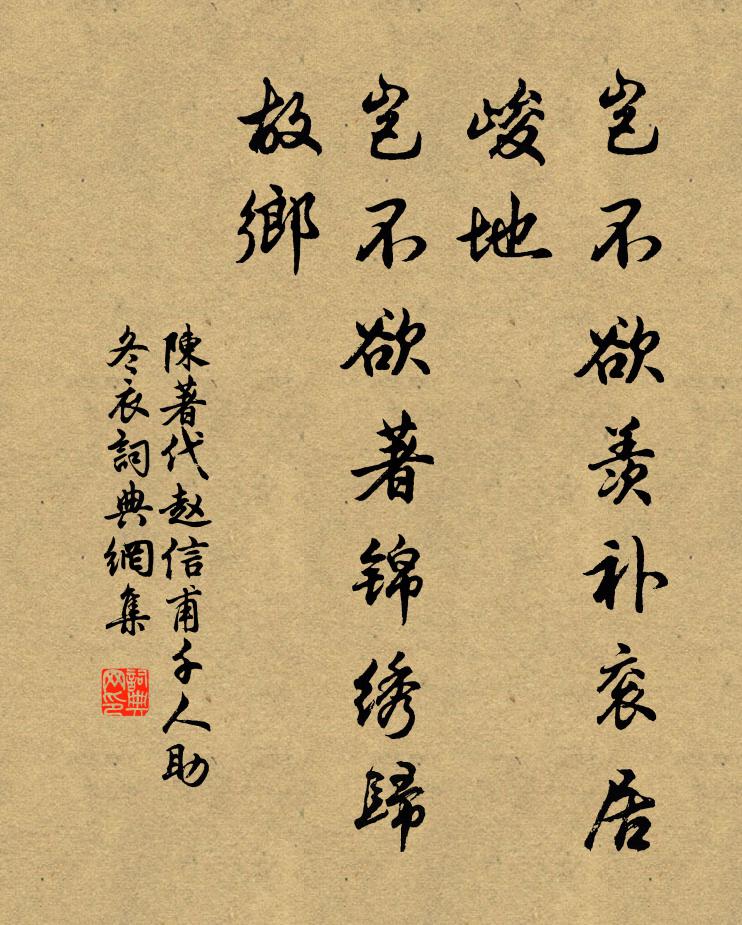 豈不欲羨补衮居
峻地
豈不欲著锦绣歸
故鄉
陳著代赵信甫千人助
冬衣詞典網集
詞典
网印